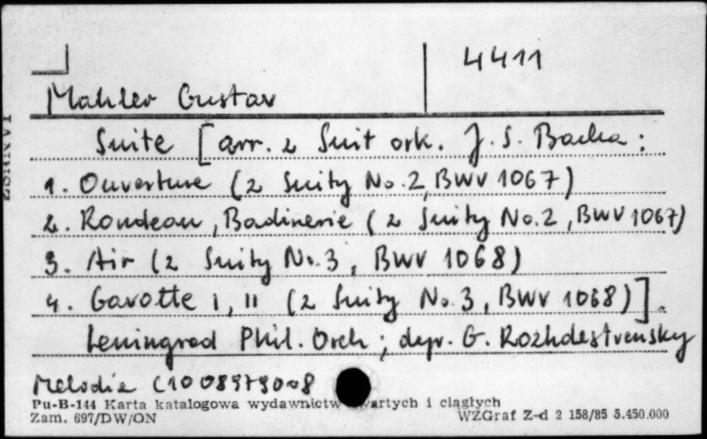 4411
Mahler Gustav
Suite [arr. z Suit ork. J. S. Bacha:
1. Ouverture (z Suity No. 2, BWV 1067)
2. Rondeau, Badinerie (z Suity No. 2, BWV 1067)
3. Air (z Suity No. 3, BWV 1068)
4. Gavotte I, II (z Suity No. 3, BWV 1068)].
Leningrad Phil. Orch; dyr. G. Rozhdestvensky
Melodia C10 08979008
Pu-B-144 Karta katalogowa wydawnictw zwartych i ciągłych
Zam. 697/DW/ON WZGraf Z-d 2 158/85 5.450.000